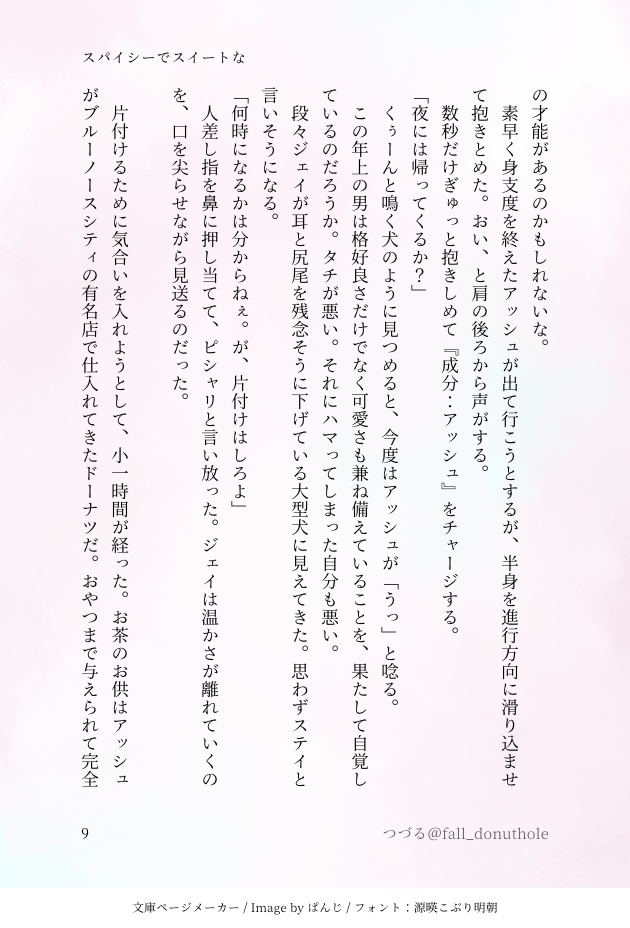 スパイシーでスイートな
の才能があるのかもしれないな。
　素早く身支度を終えたアッシュが出て行こうとするが、半身を進行方向に滑り込ませ
て抱きとめた。おい、と肩の後ろから声がする。
　数秒だけぎゅっと抱きしめて『成分：アッシュ』をチャージする。
「夜には帰ってくるか？」
　くぅーんと鳴く犬のように見つめると、今度はアッシュが「うっ」と唸る。
　この年上の男は格好良さだけでなく可愛さも兼ね備えていることを、果たして自覚し
ているのだろうか。タチが悪い。それにハマってしまった自分も悪い。
　段々ジェイが耳と尻尾を残念そうに下げている大型犬に見えてきた。思わずステイと
言いそうになる。
「何時になるかは分からねぇ。が、片付けはしろよ」
　人差し指を鼻に押し当てて、ピシャリと言い放った。ジェイは温かさが離れていくの
を、口を尖らせながら見送るのだった。
　片付けるために気合いを入れようとして、小一時間が経った。お茶のお供はアッシュ
がブルーノースシティの有名店で仕入れてきたドーナツだ。おやつまで与えられて完全
9
つづる@fall_donuthole
文庫ページメーカー / Image by ぱんじ / フォント：源暎こぶり明朝